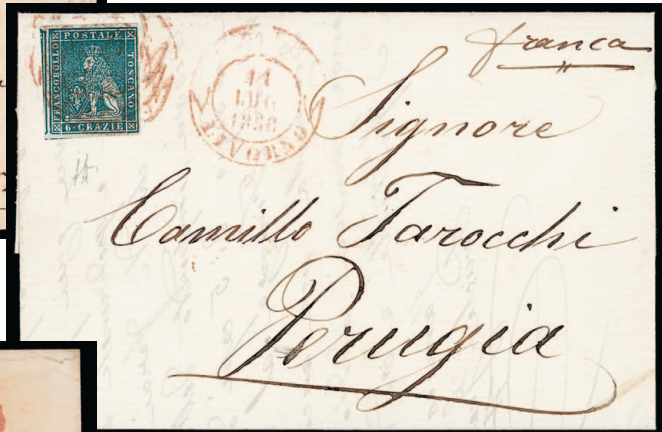 FRANCOBOLLO POSTALE TOSCANO
6 CRAZIE
LIVORNO
11
LUG
1856
franca
Signore
Camillo Tarocchi
Perugia